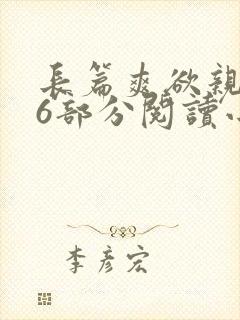 長篇爽欲親
6部分閱讀小
李彦宏